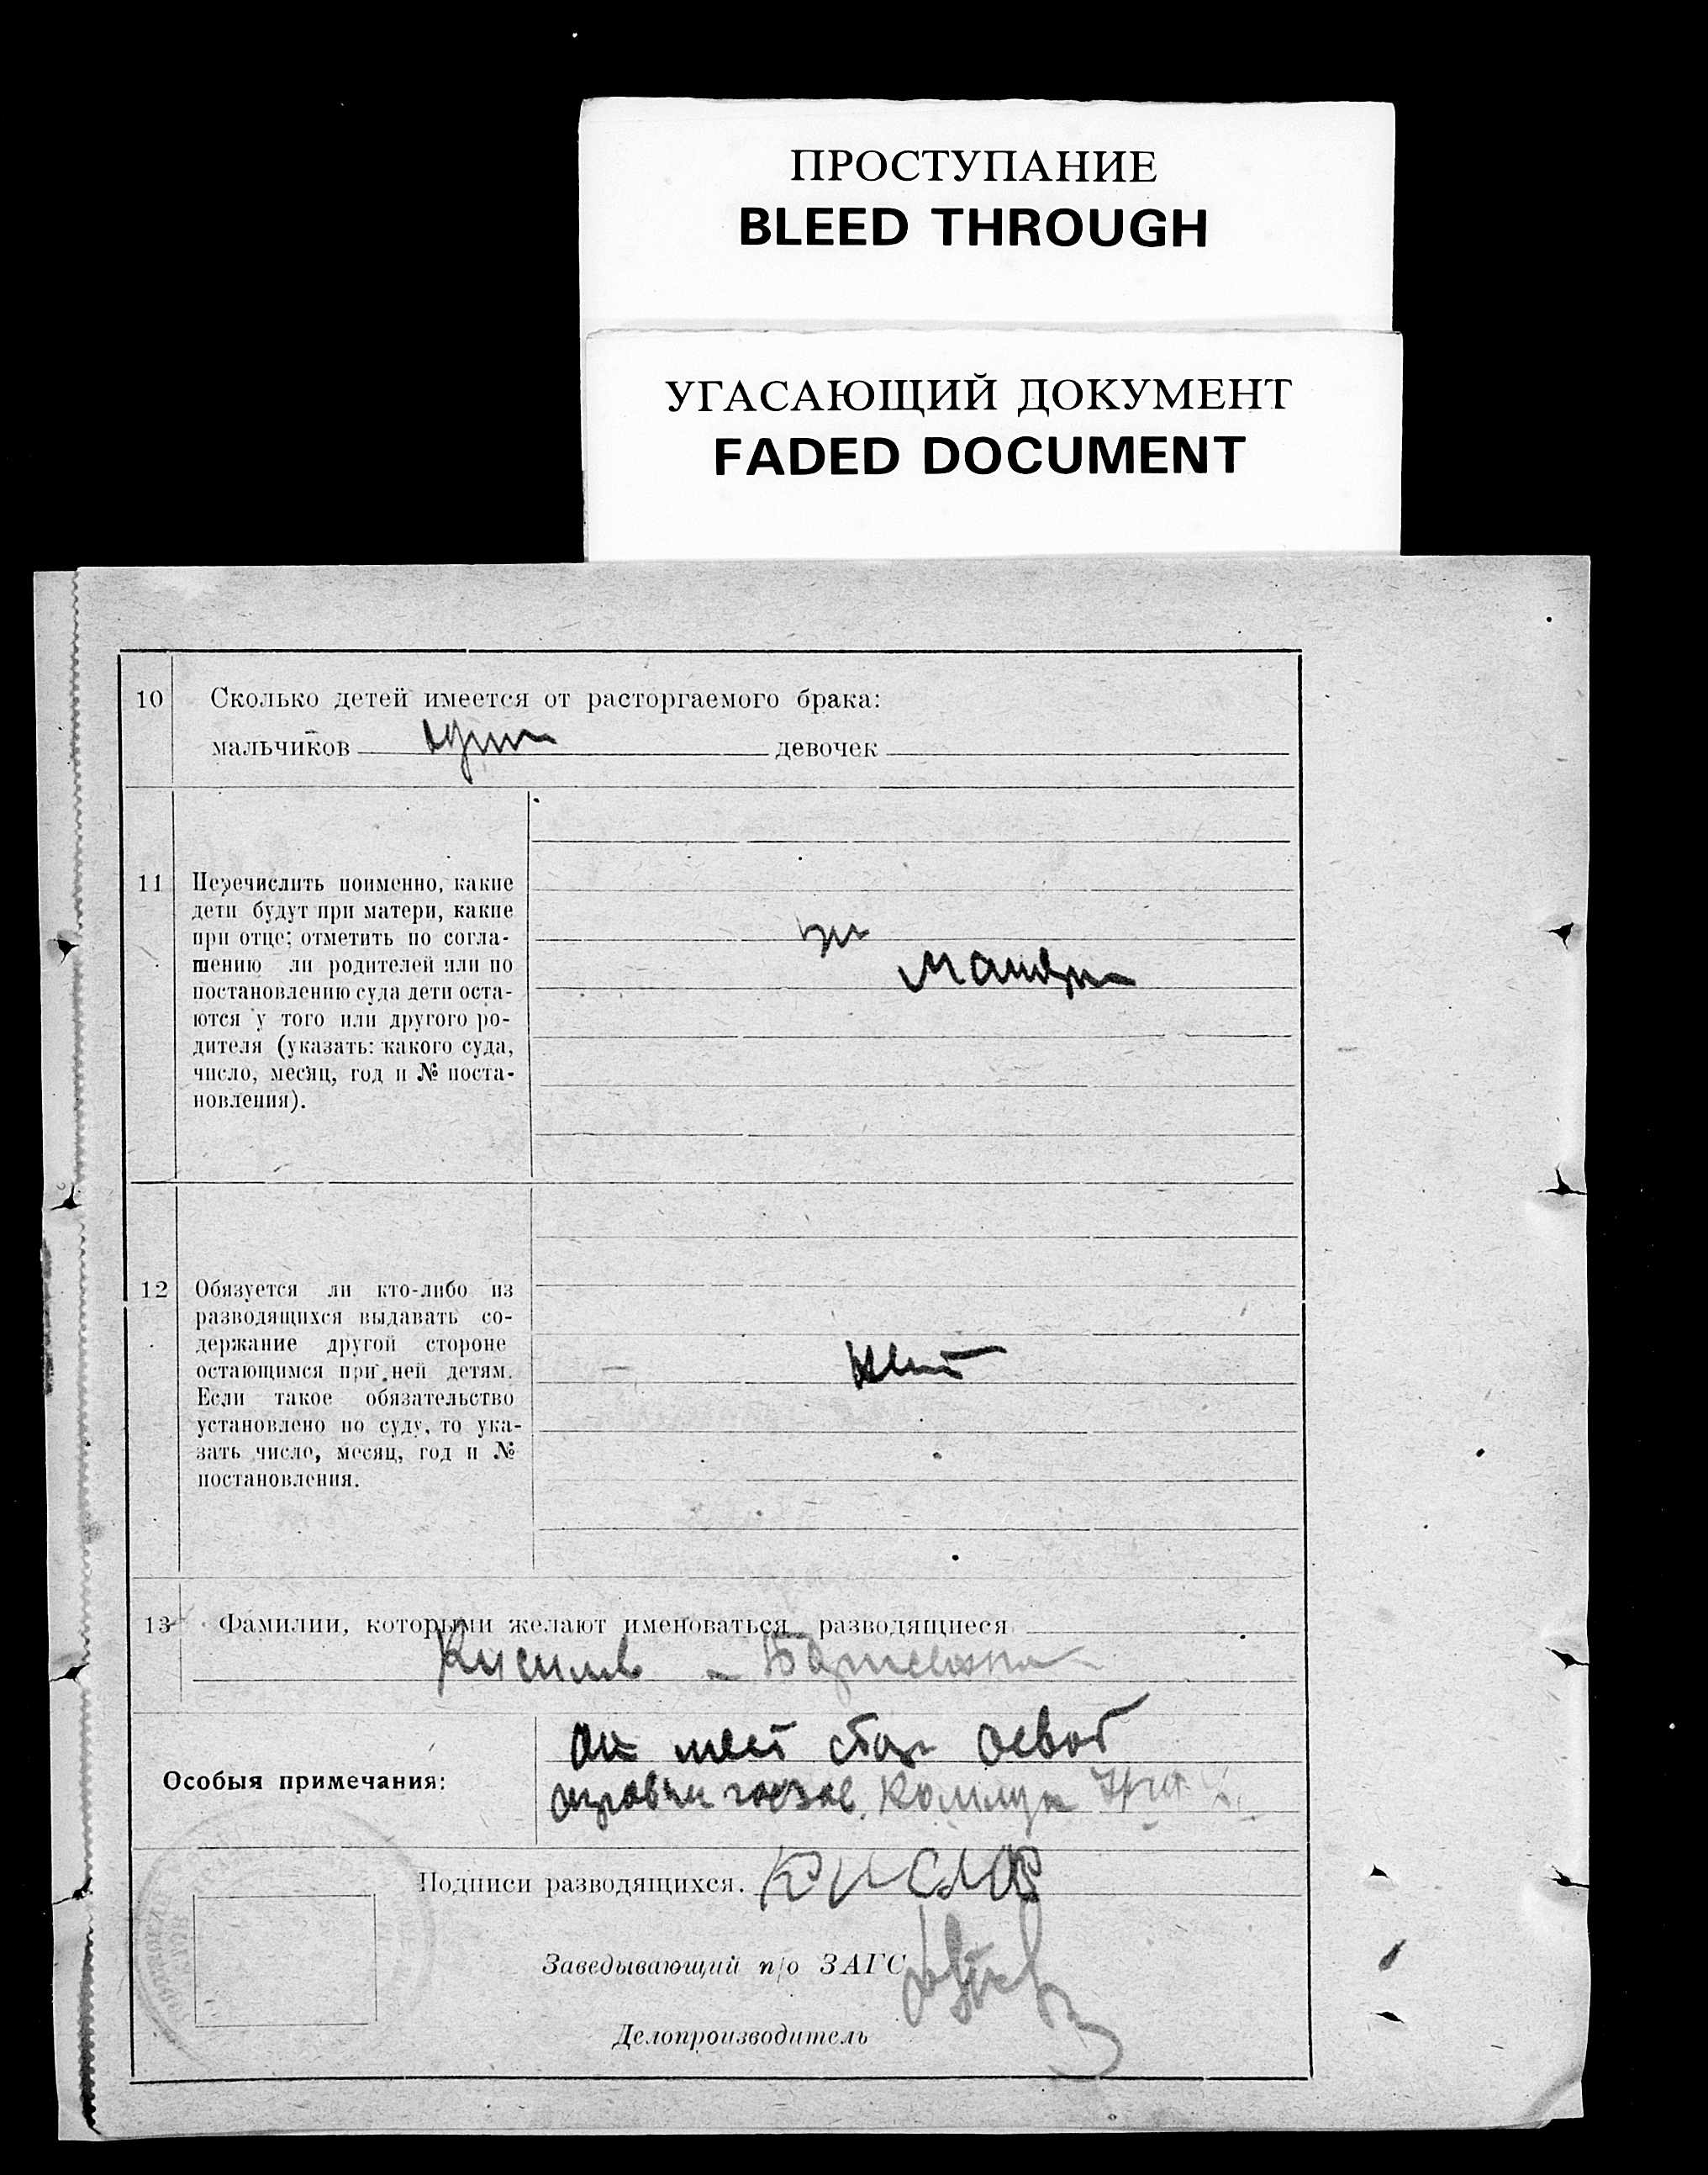 ПРОСТУПАНИЕ
BLEED THROUGH
УГАСАЮЩИЙ ДОКУМЕНТ
FADED DOCUMENT
10 Сколько детей имеется от расторгаемого брака:
мальчиков один девочек
11 Перечислить поименно, какие
дети будут при матери, какие
при отце; отметить по согла-
шению ли родителей или по
постановлению суда дети оста-
ются у того или другого ро-
дителя (указать: какого суда,
число, месяц, год и № поста-
новления).
при
матери
12 Обязуется ли кто-либо из
разводящихся выдавать со-
держание другой стороне
остающимся при ней детям.
Если такое обязательство
установлено по суду, то ука-
зать число, месяц, год и №
постановления.
нет
13 Фамилии, которыми желают именоваться разводящиеся
Особыя примечания:
Подписи разводящихся.
Заведывающий п/о ЗАГС
Делопроизводитель